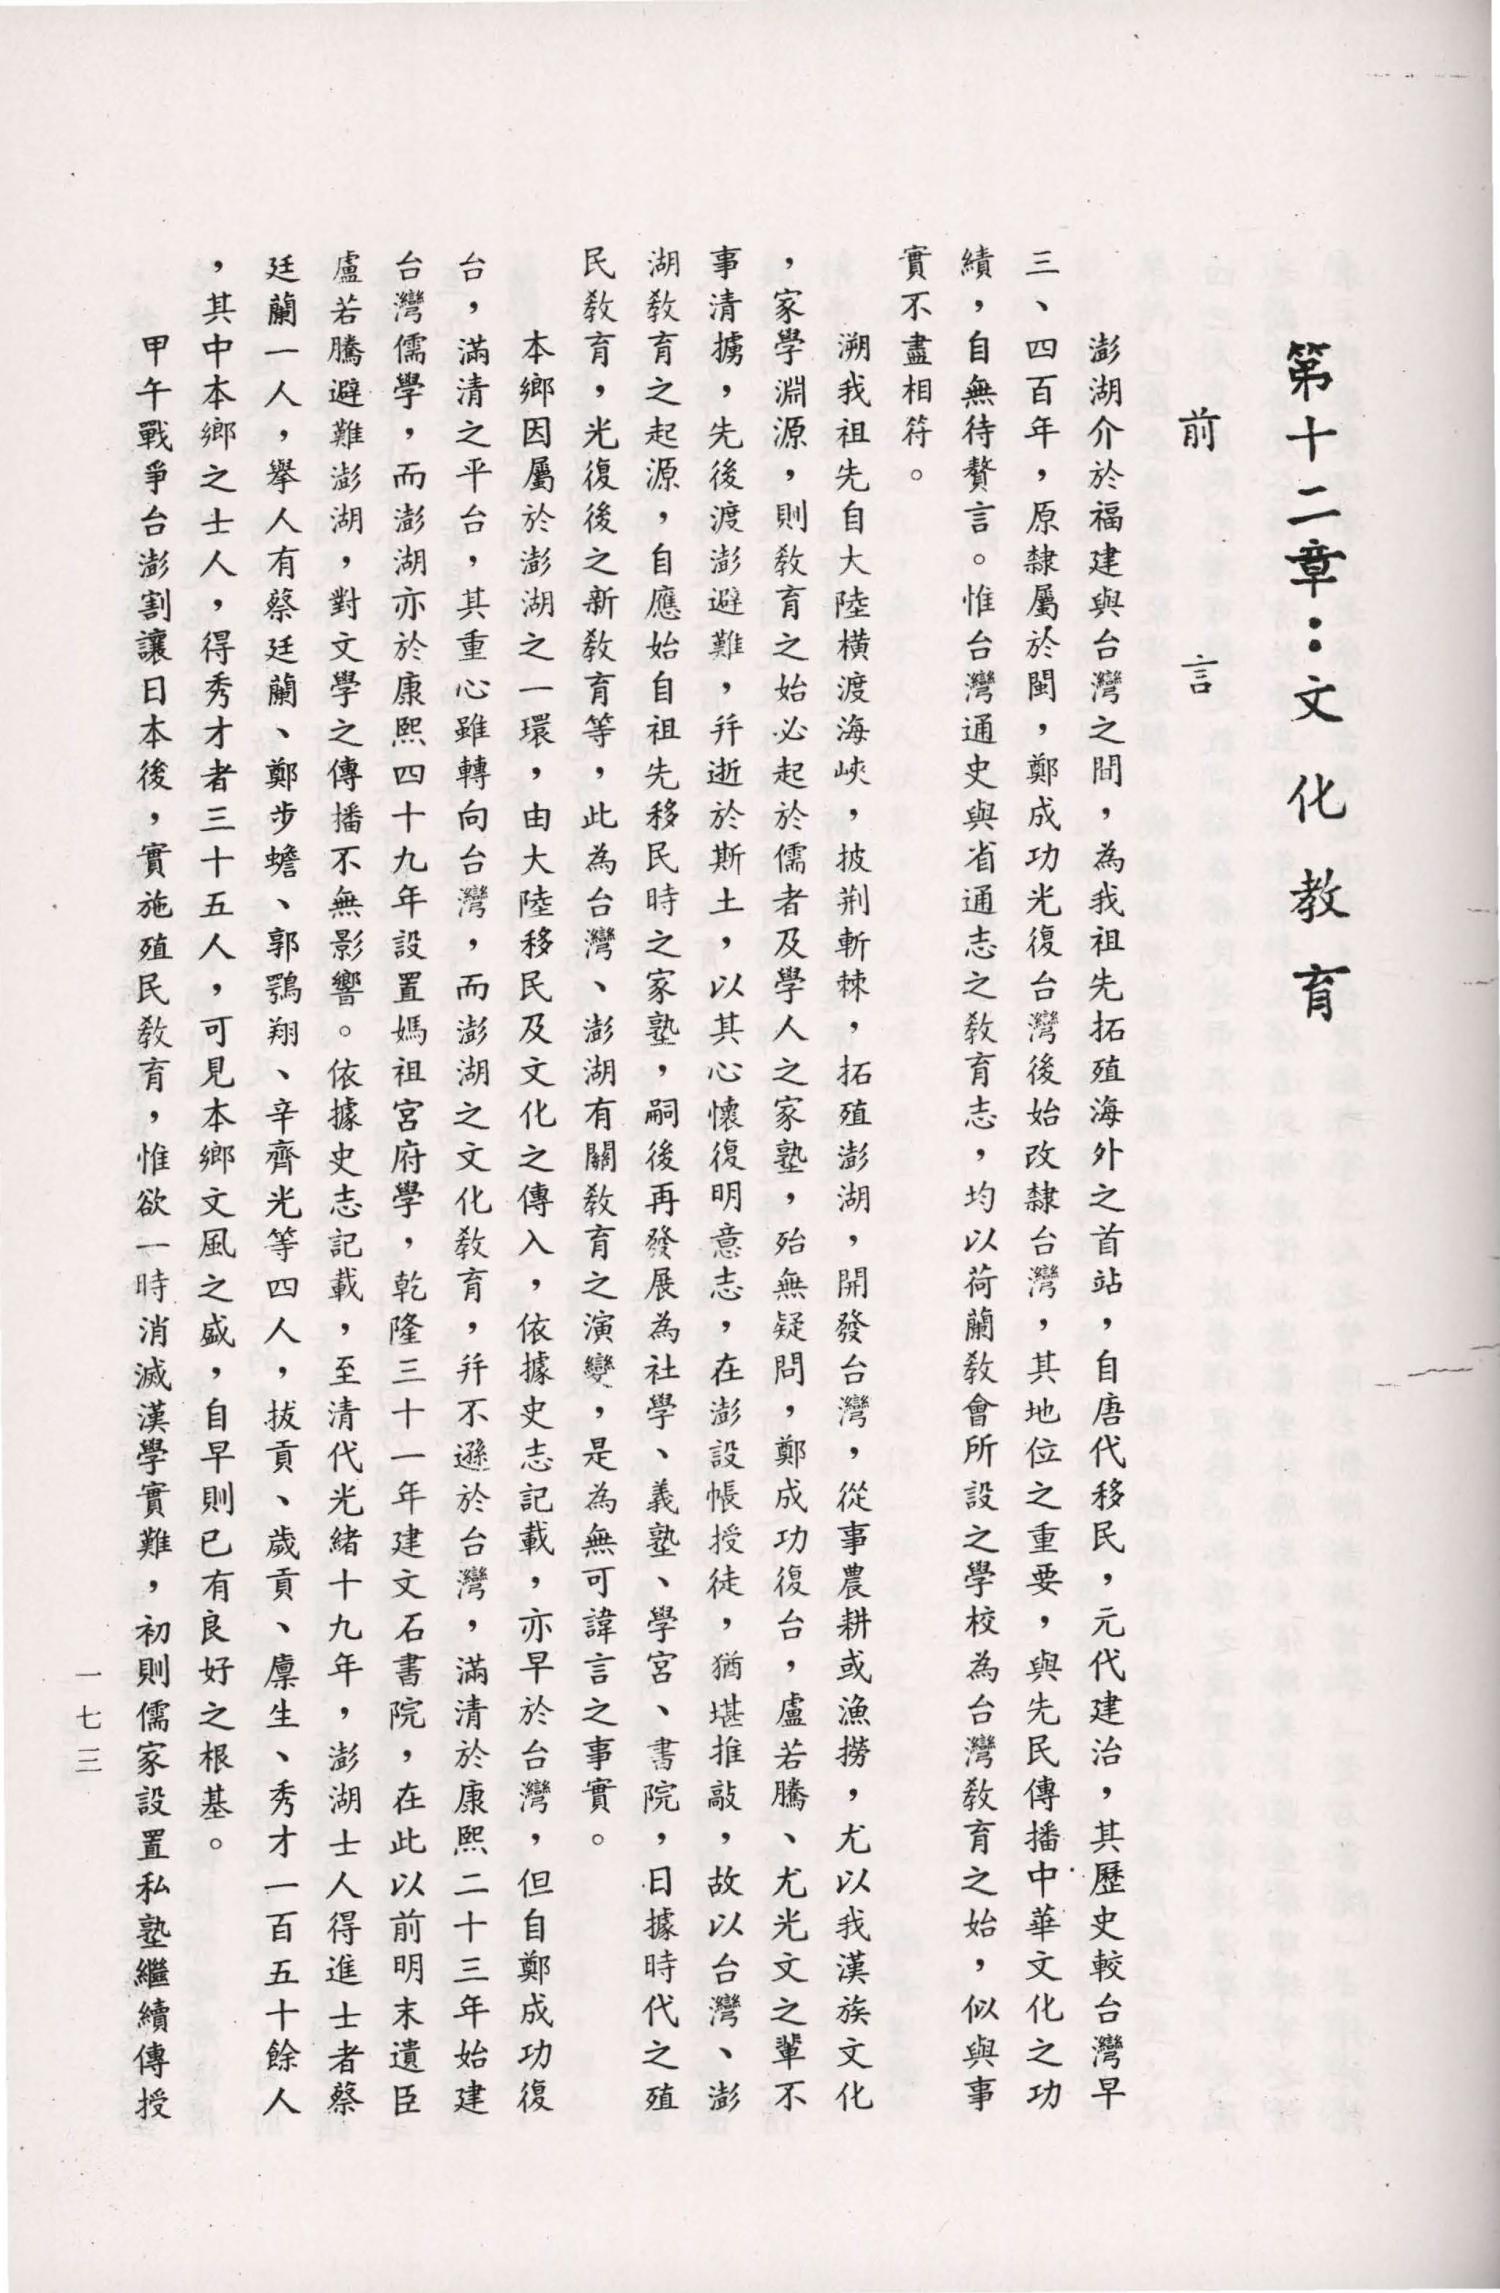 第十二章：文化教育
前言
澎湖介於福建與台灣之間，為我祖先拓殖海外之首站，自唐代移民，元代建治，其歷史較台灣早
三、四百年，原隸屬於閩，鄭成功光復台灣後始改隸台灣，其地位之重要，與先民傳播中華文化之功
績，自無待贅言。惟台灣通史與省通志之教育志，均以荷蘭教會所設之學校為台灣教育之始，似與事
實不盡相符。
溯我祖先自大陸橫渡海峽，披荆斬棘，拓殖澎湖，開發台灣，從事農耕或漁撈，尤以我漢族文化
，家學淵源，則教育之始必起於儒者及學人之家塾，殆無疑問，鄭成功復台，盧若騰、尤光文之輩不
事清擄，先後渡澎避難，幷逝於斯土，以其心懷復明意志，在澎設帳授徒，猶堪推敲，故以台灣、澎
湖教育之起源，自應始自祖先移民時之家塾，嗣後再發展為社學、義塾、學宮、書院，日據時代之殖
民教育，光復後之新教育等，此為台灣、澎湖有關教育之演變，是為無可諱言之事實。
本鄉因屬於澎湖之一環，由大陸移民及文化之傳入，依據史志記載，亦早於台灣，但自鄭成功復
台，滿清之平台，其重心雖轉向台灣，而澎湖之文化教育，幷不遜於台灣，滿清於康熙二十三年始建
台灣儒學，而澎湖亦於康熙四十九年設置媽祖宮府學，乾隆三十一年建文石書院，在此以前明末遺臣
盧若騰避難澎湖，對文學之傳播不無影響。依據史志記載，至清代光緒十九年，澎湖士人得進士者蔡
廷蘭一人，舉人有蔡廷蘭、鄭步蟾、郭鶚翔、辛齊光等四人，拔貢、歲貢、廩生、秀才一百五十餘人
，其中本鄉之士人，得秀才者三十五人，可見本鄉文風之盛，自早則已有良好之根基。
甲午戰爭台澎割讓日本後，實施殖民教育，惟欲一時消滅漢學實難，初則儒家設置私塾繼續傳授
一七三